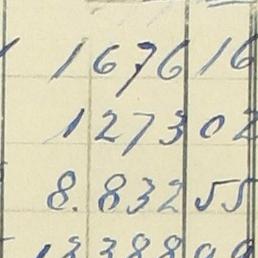 167616
127302
8.83255